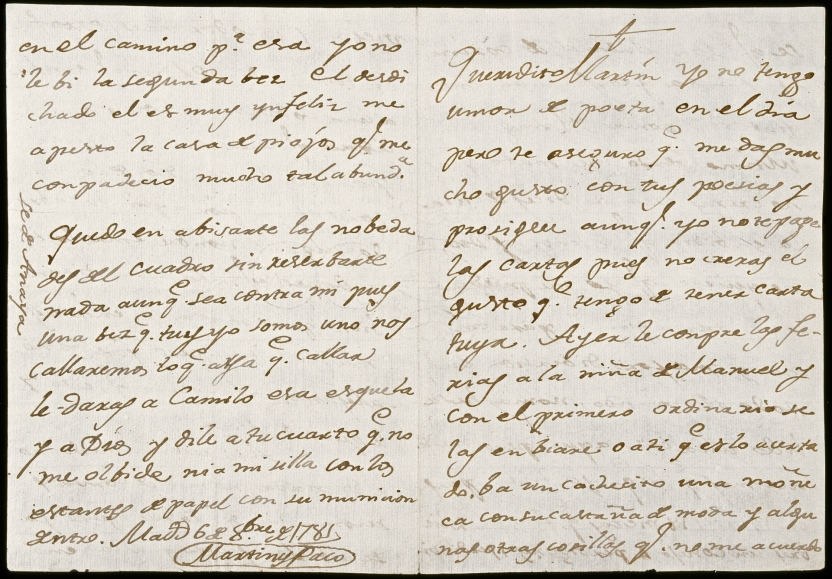 en el camino pª. esa yo no
le bi la segunda bez el desdi
chado el es muy ynfeliz me
apesto la casa de piojos qe. me
conpadecio mucho tal abundª.
Quedo en abisarte las nobeda
des del cuadro sin reserbarte
nada aunqe. sea contra mi pues
una bez qe. tu y yo somos uno nos
callaremos lo qe. aya qe. callar
le daras a Camilo esa esquela
y a Dios y dile a tu cuarto qe. no
me olbide ni a mi silla con los
estantes de papel con su municion
dentro. Madd 6 de 8.bre de 1781
Martin y Paco
de Anaya
Queridito Martin yo no tengo
umor de poeta en el dia
pero te aseguro qe. me das mu
cho gusto con tus poesias y
prosigue aunqe. yo no te page
las cartas pues no creras el
gusto qe. tengo de tener carta
tuya. Ayer le conpre las fe-
rias a la niña de Manuel y
con el primero ordinario se
las enbiare o a ti qe. es lo acerta
do. ba un cochecito una moñe
ca con su castaña de moda y algu
nas otras cosillas qe. no me acuerdo